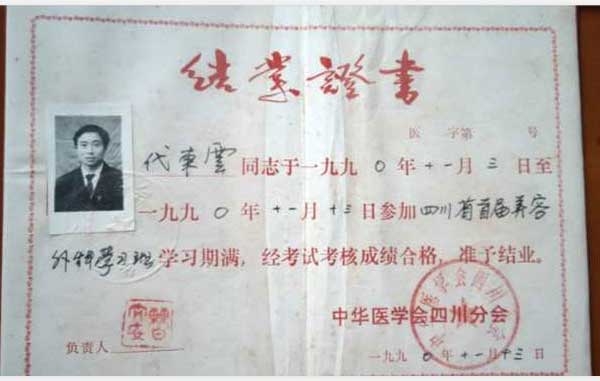 结业證書
医 字第 号
代东雲 同志于一九九0年十一月三日至
一九九0年十一月十三日参加四川省首届美容
外科学习班学习期满,经考试考核成绩合格,准予结业。
中华医学会四川分会
负责人
一九九0年十一月十三日